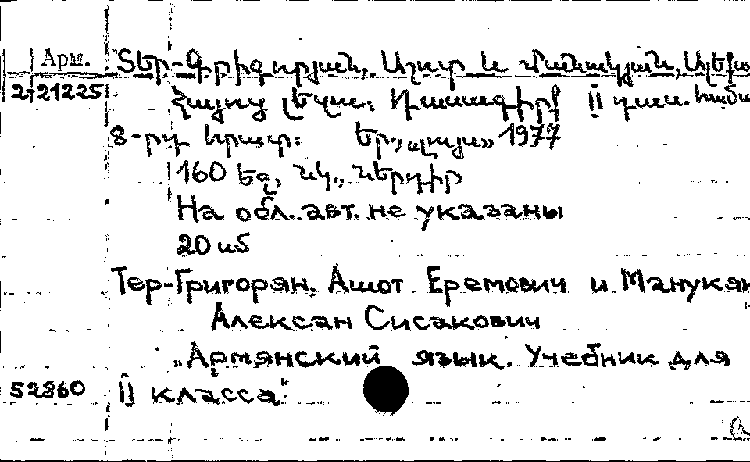 Арм. Տեր-Գրիգորյան, Աշոտ և Մանուկյան,
2-21225 Հայոց լեզու: Դասագիրք II դաս. համա
8-րդ հրատ: Եր., «Լույս» 1977
160 եջ, նկ., ներդիր
На обл. авт. не указаны
20 и5
Тер-Григорян, Ашот Еремович и Манукян
Алексан Сисакович
„Армянский язык. Учебник для
52860 II класса"